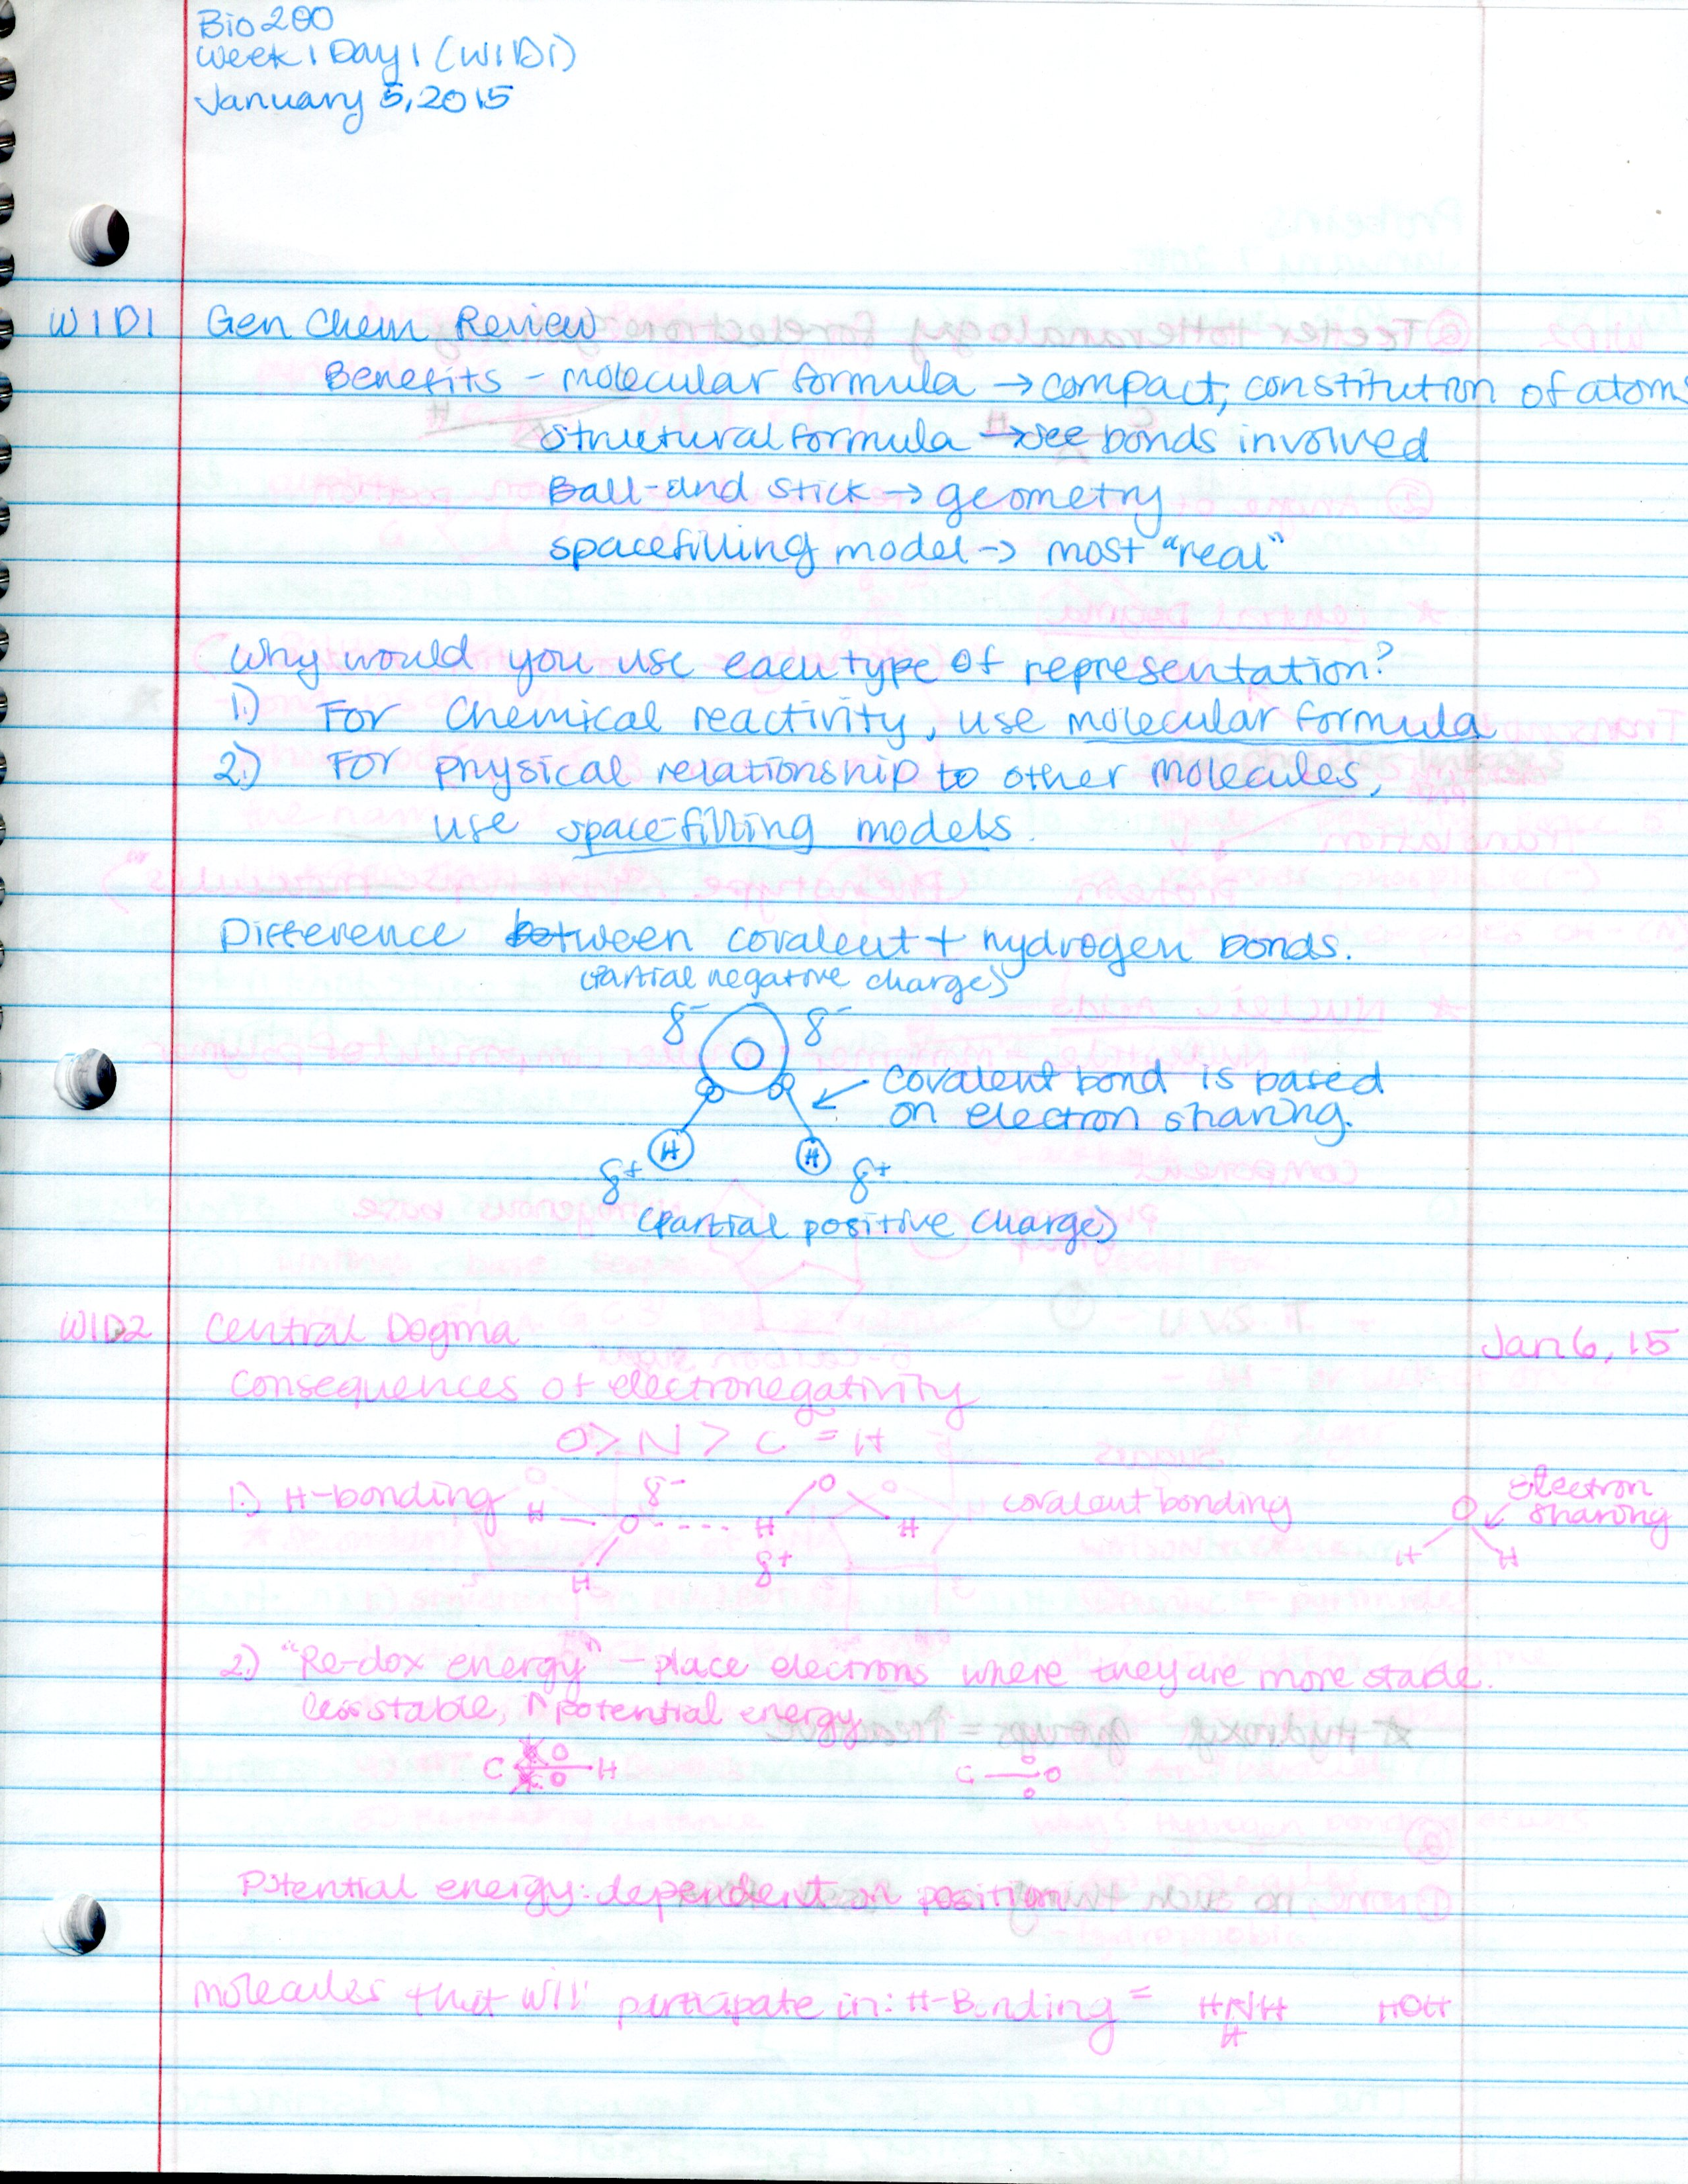 Bio 200
Week 1 Day 1 (W1D1)
January 5, 2015
W1D1 Gen Chem Review
Benefits - molecular formula → compact, constitution of atoms
structural formula → see bonds involved
Ball-and stick → geometry
spacefilling model -> most "real"
Why would you use each type of representation?
1.) For Chemical reactivity, use molecular formula
2.) For physical relationship to other molecules,
use space-filling models.
Difference between covalent + hydrogen bonds.
(Partial negative charge)
δ- O δ-
covalent bond is based
on electron sharing.
H H
δ+ δ+
(Partial positive charge)
W1D2 Central Dogma Jan 6, 15
Consequences of electronegativity
O > N > C ≅ H
1.) H-bonding H O δ- H δ+ O H H covalent bonding O H H Electron sharing
2.) "Re-dox energy" - place electrons where they are more stable.
less stable, ↑ potential energy
C H C O
Potential energy: dependent on position
molecules that will participate in: H-Bonding = HNH HOH
H